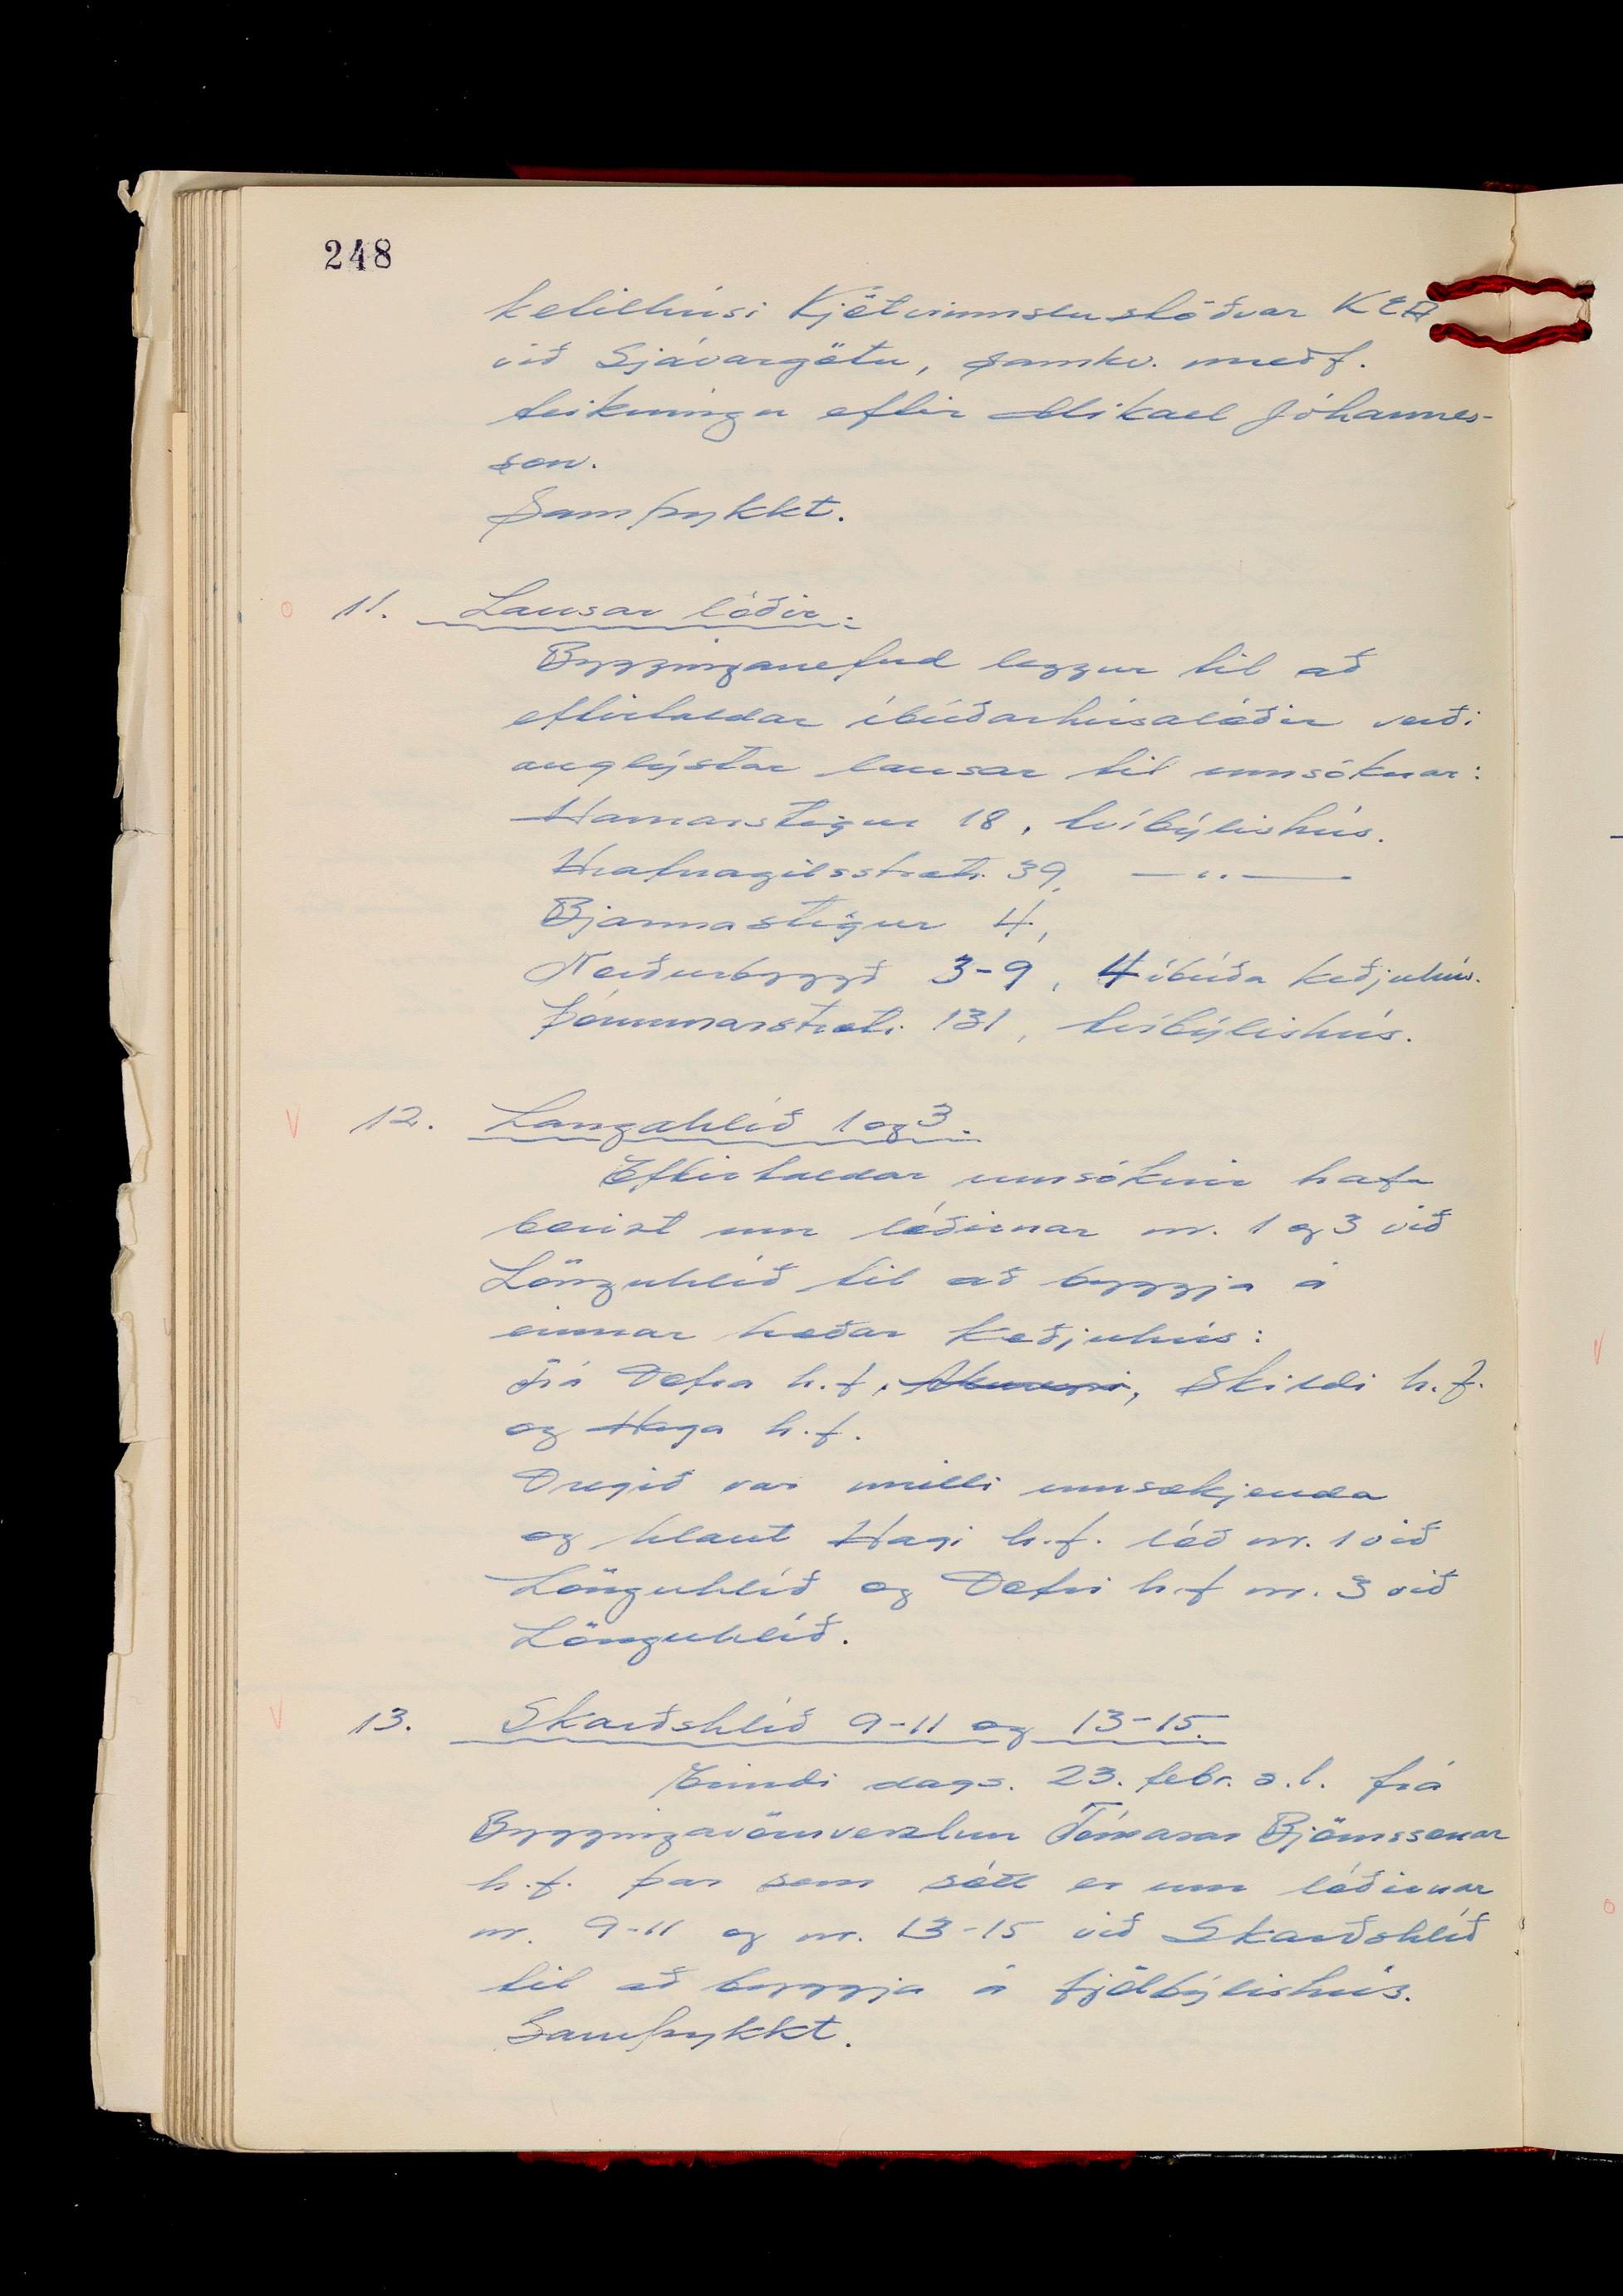 248
ketilhúsi Kjötvinnslustöðvar KEA
við Sjávargötu, samkv. meðf.
teikningu eftir Mikael Jóhannes-
son.
Samþykkt.
11. Lausar lóðir.
Bygginganefnd leggur til að
eftirtaldar íbúðarhúsalóðir verði
auglýstar lausar til umsóknar:
Hamarstígur 18, tvíbýlishús.
Hrafnagilsstræti 39, —〃—
Bjarmastígur 4,
Norðurbyggð 3-9, 4 íbúða keðjuhús.
Þórunnarstræti 131, tvíbýlishús.
12. Langahlíð 1 og 3.
Eftirtaldar umsóknir hafa
borist um lóðirnar nr. 1 og 3 við
Lönguhlíð til að byggja á
einnar hæðar keðjuhús:
Frá Dofra h.f., Skildi h.f.
og Haga h.f.
Dregið var milli umsækjenda
og hlaut Hagi h.f. lóð nr. 1 við
Lönguhlíð og Dofri h.f nr. 3 við
Lönguhlíð.
13. Skarðshlíð 9-11 og 13-15.
Erindi dags. 23. febr. s.l. frá
Byggingavöruverzlun Tómasar Björnssonar
h.f. þar sem sótt er um lóðirnar
nr. 9-11 og nr. 13-15 við Skarðshlíð
til að byggja á fjölbýlishús.
Samþykkt.